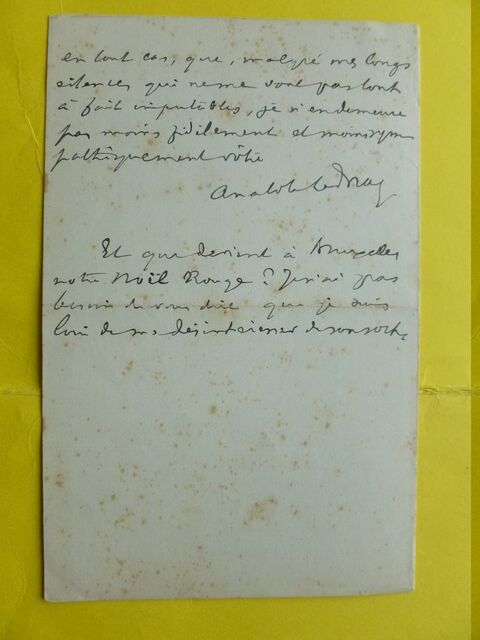 en tout cas, que, malgré mes longs
silences qui ne me sont pas tout
à fait imputables, je n'en demeure
pas moins fidèlement et moins sym
pathiquement vôtre
Anatole Le Braz
Et que devient à Bruxelles
notre Noël Rouge ? Je n'ai pas
besoin de vous dire que je suis
loin de me désintéresser de son sort.